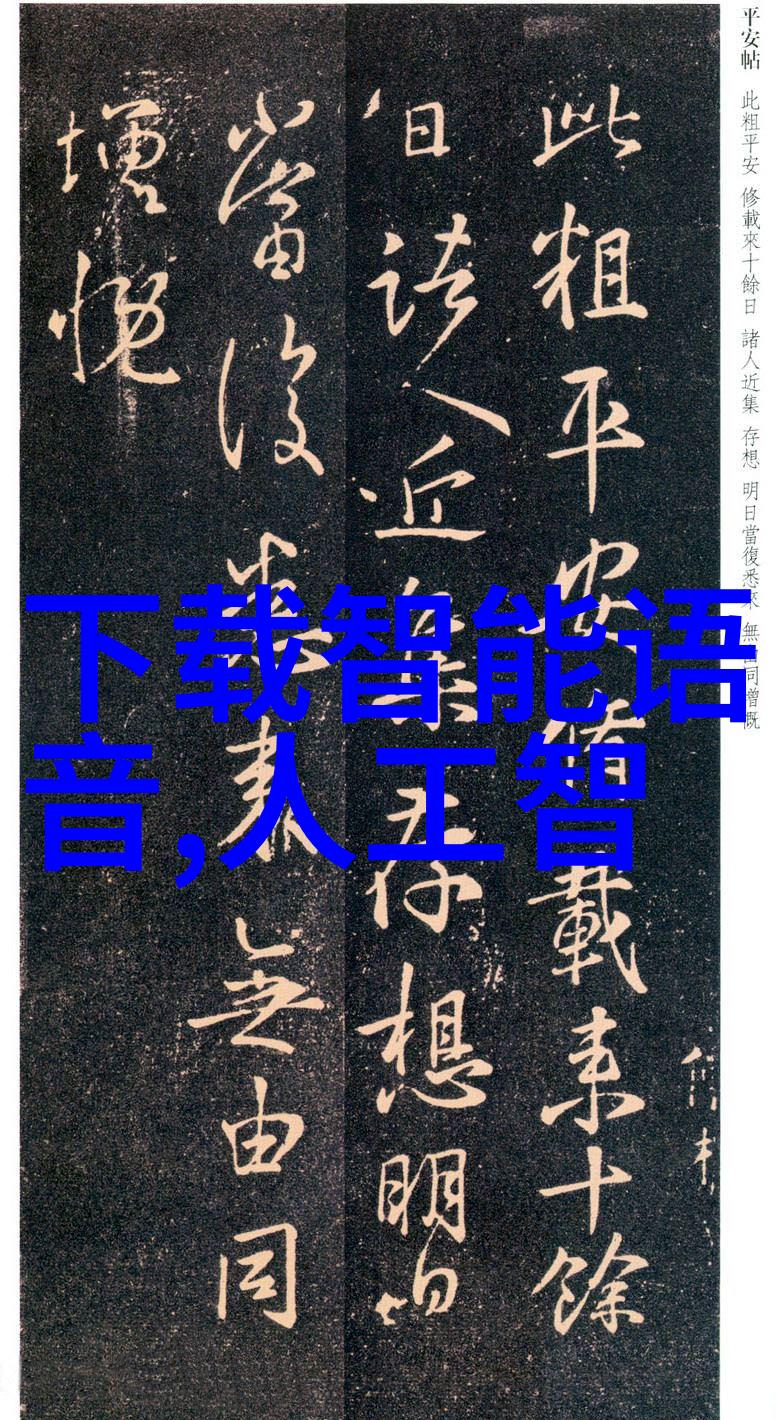 平安帖 此粗平安 修載來十餘日 諸人近集 存想 明日當復悉來 無由同增慨
此粗平安脩載來十餘
日諸人近集存想明日
當復悉來無由同
增慨
下载智能语
音,人工智